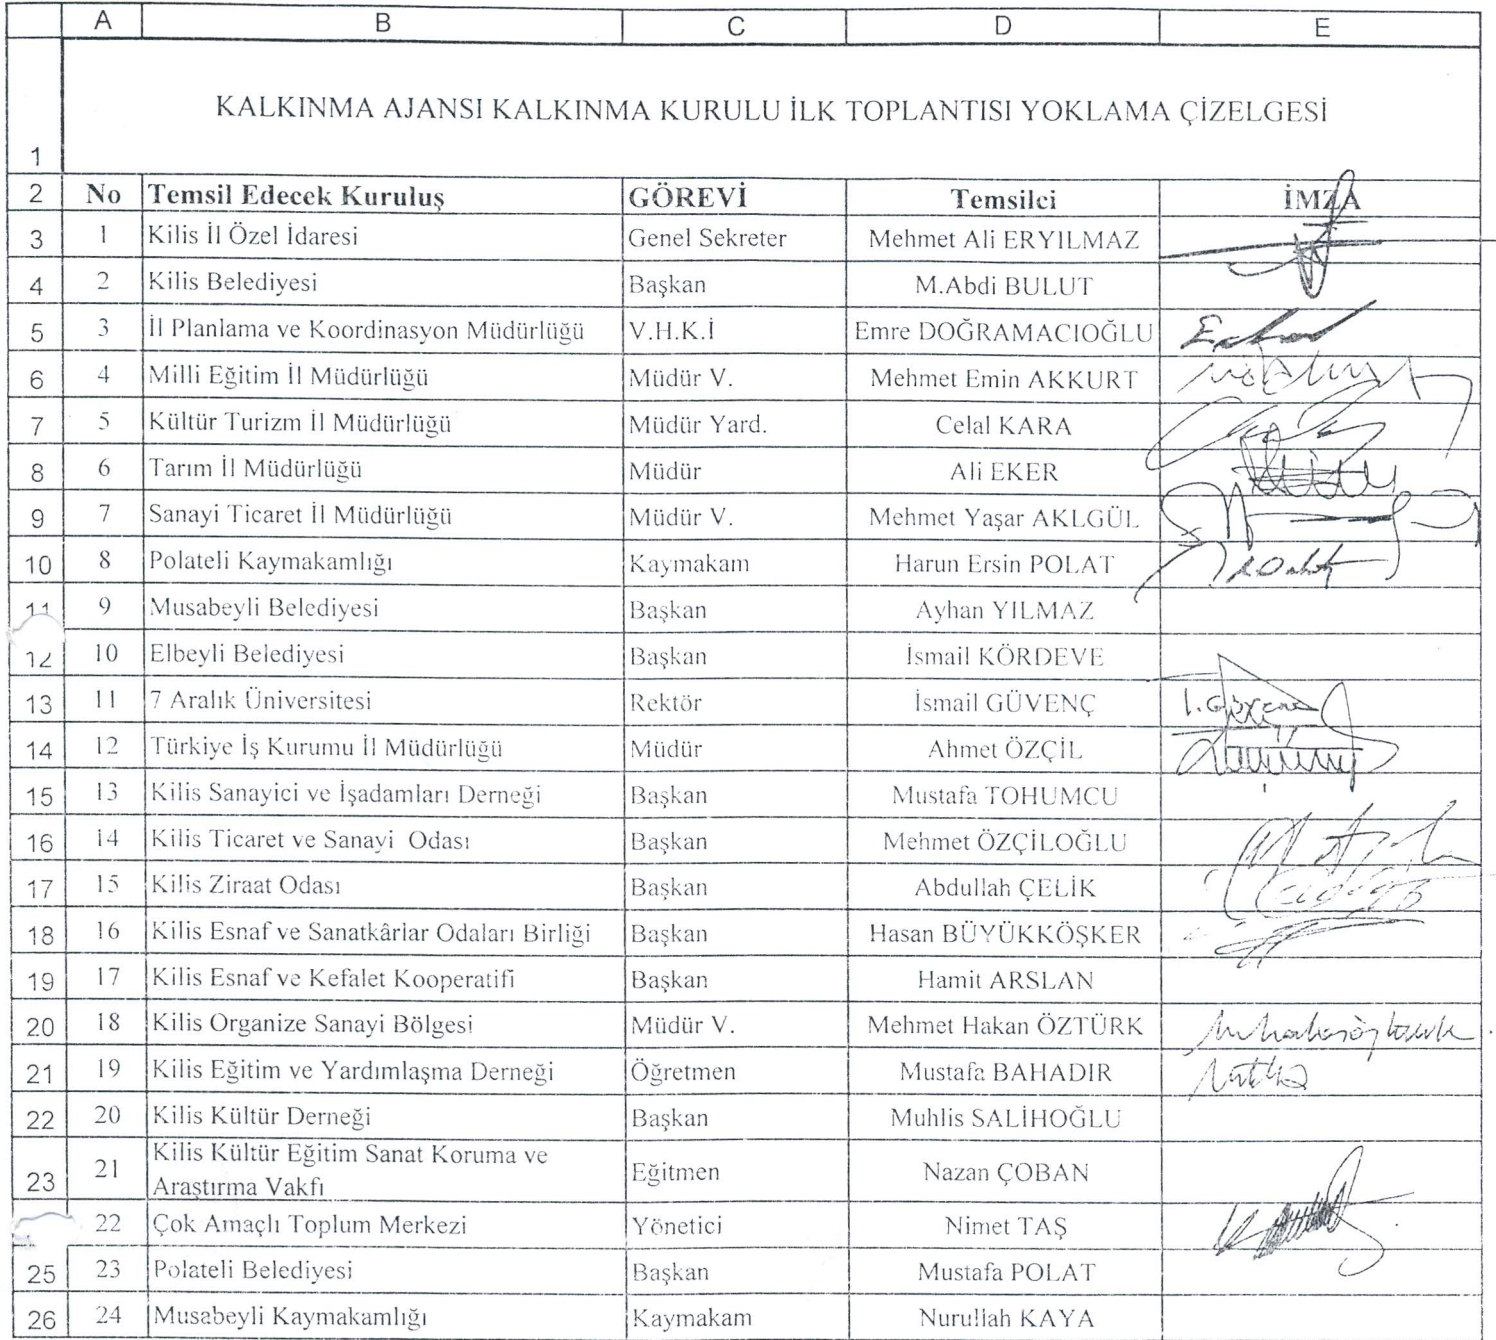 A B C D E
1 KALKINMA AJANSI KALKINMA KURULU İLK TOPLANTISI YOKLAMA ÇİZELGESİ
2 No Temsil Edecek Kuruluş GÖREVİ Temsilci İMZA
3 1 Kilis İl Özel İdaresi Genel Sekreter Mehmet Ali ERYILMAZ
4 2 Kilis Belediyesi Başkan M.Abdi BULUT
5 3 İl Planlama ve Koordinasyon Müdürlüğü V.H.K.İ Emre DOĞRAMACIOĞLU
6 4 Milli Eğitim İl Müdürlüğü Müdür V. Mehmet Emin AKKURT
7 5 Kültür Turizm İl Müdürlüğü Müdür Yard. Celal KARA
8 6 Tarım İl Müdürlüğü Müdür Ali EKER
9 7 Sanayi Ticaret İl Müdürlüğü Müdür V. Mehmet Yaşar AKLGÜL
10 8 Polateli Kaymakamlığı Kaymakam Harun Ersin POLAT
11 9 Musabeyli Belediyesi Başkan Ayhan YILMAZ
12 10 Elbeyli Belediyesi Başkan İsmail KÖRDEVE
13 11 7 Aralık Üniversitesi Rektör İsmail GÜVENÇ
14 12 Türkiye İş Kurumu İl Müdürlüğü Müdür Ahmet ÖZÇİL
15 13 Kilis Sanayici ve İşadamları Derneği Başkan Mustafa TOHUMCU
16 14 Kilis Ticaret ve Sanayi Odası Başkan Mehmet ÖZÇİLOĞLU
17 15 Kilis Ziraat Odası Başkan Abdullah ÇELİK
18 16 Kilis Esnaf ve Sanatkârlar Odaları Birliği Başkan Hasan BÜYÜKKÖŞKER
19 17 Kilis Esnaf ve Kefalet Kooperatifi Başkan Hamit ARSLAN
20 18 Kilis Organize Sanayi Bölgesi Müdür V. Mehmet Hakan ÖZTÜRK
21 19 Kilis Eğitim ve Yardımlaşma Derneği Öğretmen Mustafa BAHADIR
22 20 Kilis Kültür Derneği Başkan Muhlis SALİHOĞLU
23 21 Kilis Kültür Eğitim Sanat Koruma ve
Araştırma Vakfı Eğitmen Nazan ÇOBAN
22 Çok Amaçlı Toplum Merkezi Yönetici Nimet TAŞ
25 23 Polateli Belediyesi Başkan Mustafa POLAT
26 24 Musabeyli Kaymakamlığı Kaymakam Nurullah KAYA